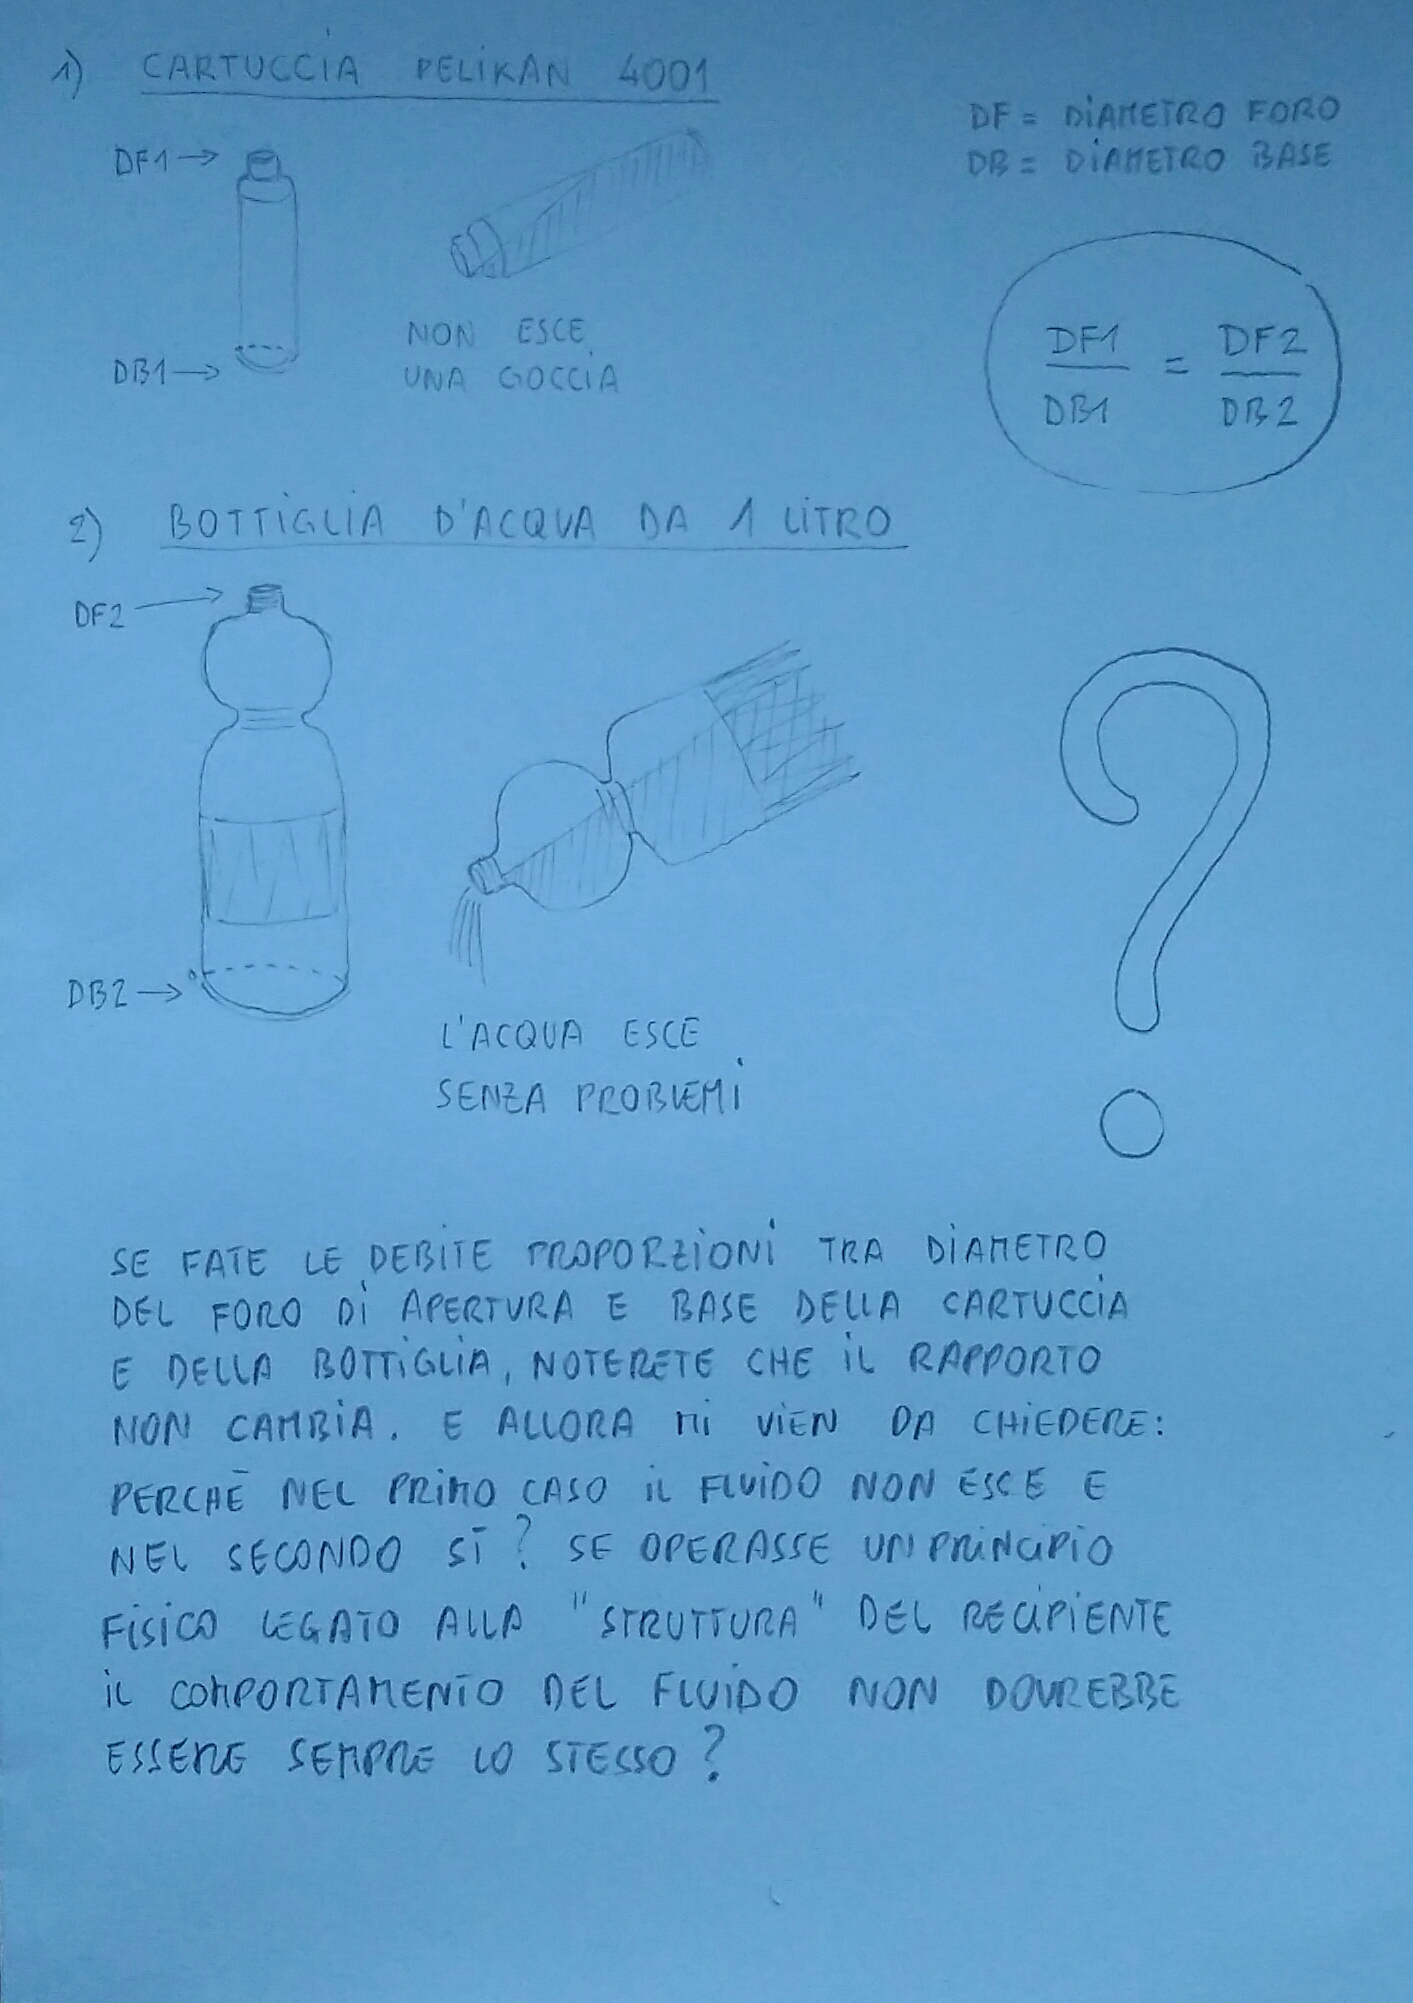 1) CARTUCCIA PELIKAN 4001
DF = DIAMETRO FORO
DB = DIAMETRO BASE
DF1 →
DB1 →
NON ESCE
UNA GOCCIA
DF1 = DF2
DB1 DB2
2) BOTTIGLIA D'ACQUA DA 1 LITRO
DF2 →
DB2 →
L'ACQUA ESCE
SENZA PROBLEMI
?
SE FATE LE DEBITE PROPORZIONI TRA DIAMETRO
DEL FORO DI APERTURA E BASE DELLA CARTUCCIA
E DELLA BOTTIGLIA, NOTERETE CHE IL RAPPORTO
NON CAMBIA. E ALLORA MI VIEN DA CHIEDERE:
PERCHÈ NEL PRIMO CASO IL FLUIDO NON ESCE E
NEL SECONDO SÌ? SE OPERASSE UN PRINCIPIO
FISICO LEGATO ALLA "STRUTTURA" DEL RECIPIENTE
IL COMPORTAMENTO DEL FLUIDO NON DOVREBBE
ESSERE SEMPRE LO STESSO?